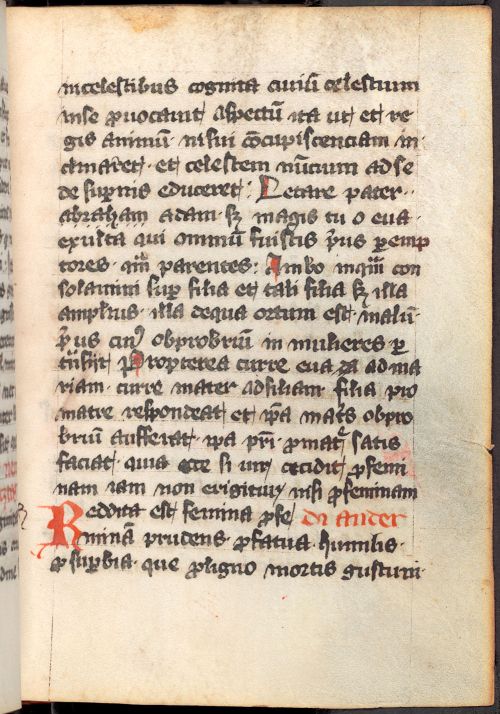 in celestibus cognita ciuiū celestium
in se ꝓuocauit aspectū ita ut et re
gis animū · in sui cōcupiscenciam in ·
clinaret · et celestem nūcium ad se
de suꝑnis educeret : Letare pater ·
abraham adam · sꝫ magis tu o eua ·
exulta qui omniū fuistis pͥus ꝑemp
tores · qm̄ parentes : Ambo inqͣm con
solamini suꝑ filia et tali filia sꝫ illa
amplius · illa de qua ortum est · malū ·
pͥus cuiꝰ obprobriū in mulieres ꝑ
trāsijt Propterea curre eua ad ma
riam · curre mater ad filiam · filia pro
matre respondeat et ip̄a matͥs obpro
brium aufferat · ip̄a pr̄i ꝓ matͤ satis
faciat · quia ecce si uir cecidit ꝓ femi
nam iam non erigitur nisi ꝓ feminam
Reddita est femina ꝓ fe di ander
minā prudens ꝓ fatua humilis ·
ꝓ suꝑbia · que ꝓ ligno mortis gustum ·